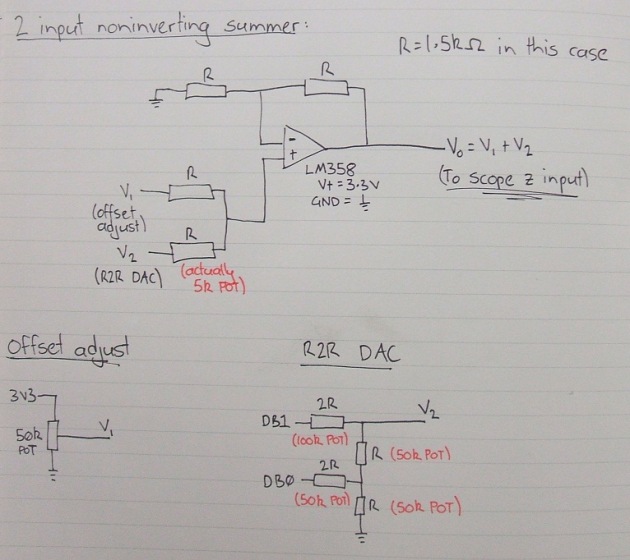 2 input noninverting summer:
R=1.5kΩ in this case
R
R
-
+
LM358
V+ = 3.3V
GND = ⏚
V₀ = V₁ + V₂
(To scope z input)
R
V₁
(offset adjust)
R
V₂
(R2R DAC)
(actually
5k POT)
Offset adjust
3V3
50k
POT
V₁
R2R DAC
2R
V₂
DB1
(100k POT)
R (50k POT)
2R
DB0
(50k POT)
R (50k POT)